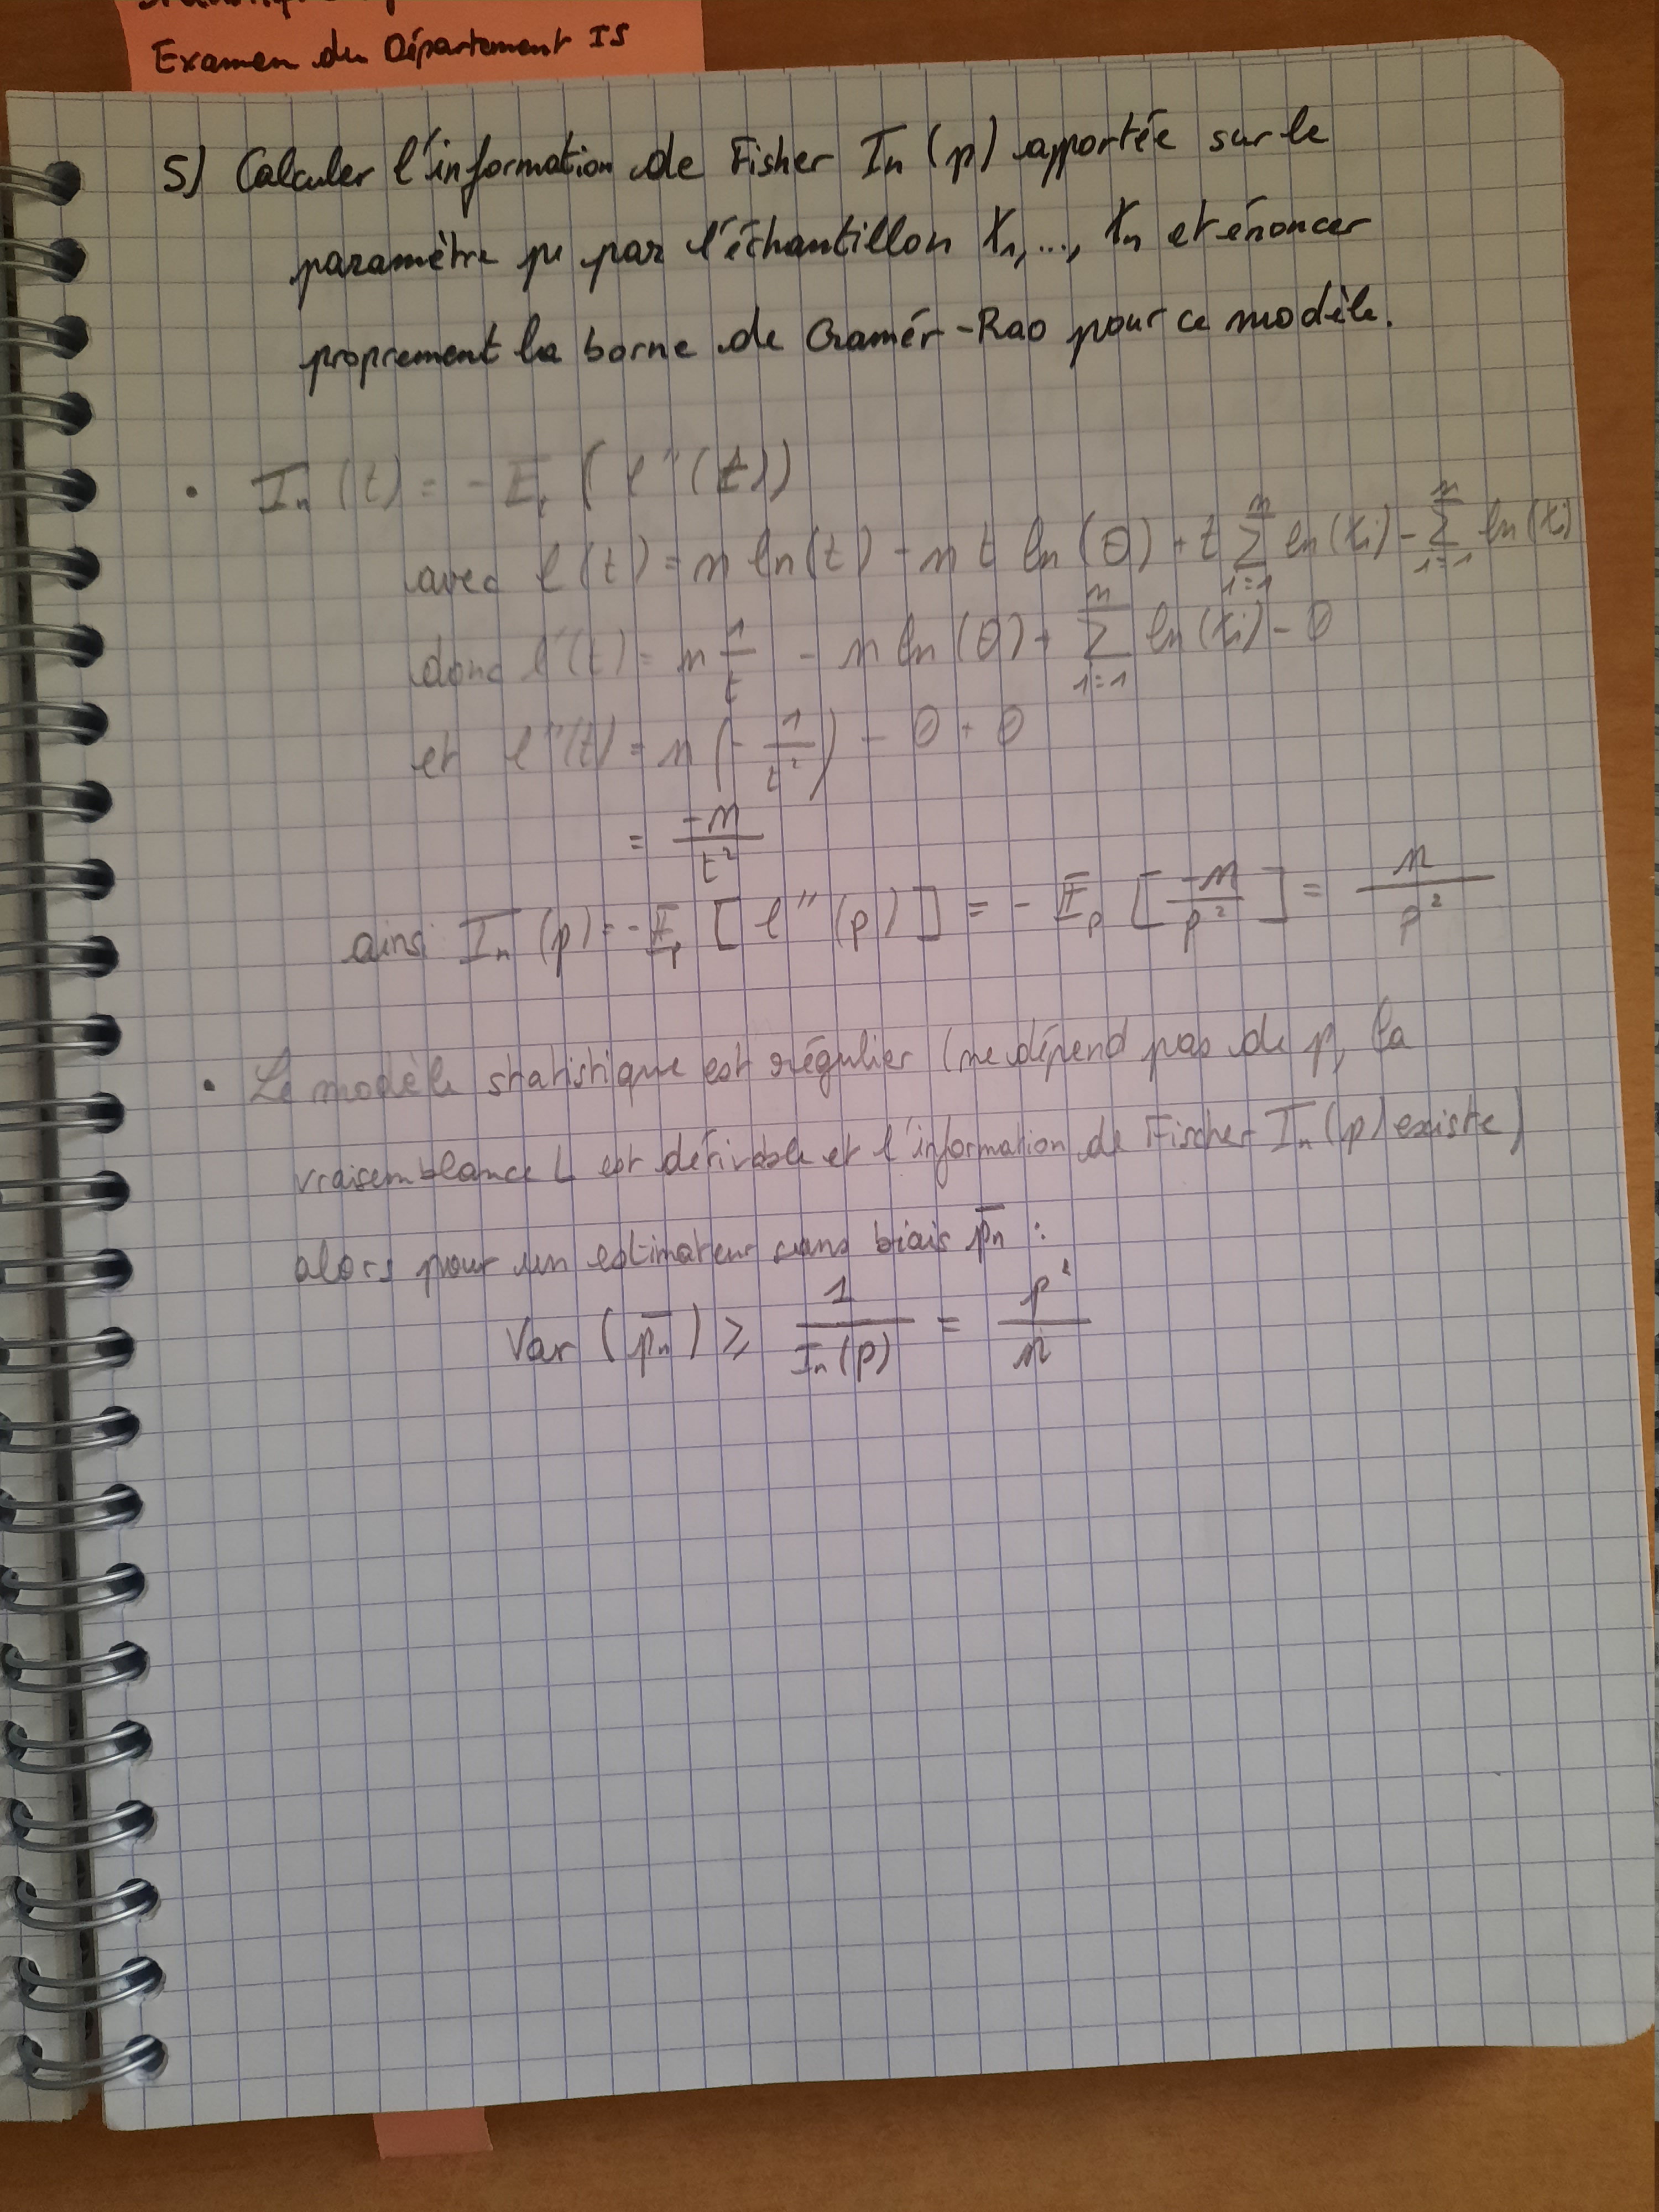 Examen du Département IS
5) Calculer l'information de Fisher In (p) apportée sur le
paramètre p par l'échantillon X1, ..., Xn et énoncer
proprement la borne de Cramér-Rao pour ce modèle.
• In (t) = - Et ( l'' (t))
avec l (t) = n ln(t) - n t ln (θ) + t ∑_{i=1}^{n} ln (Xi) - ∑_{i=1}^{n} ln (Xi)
donc l'(t) = n 1/t - n ln (θ) + ∑_{i=1}^{n} ln (Xi) - 0
et l''(t) = n (- 1/t²) - 0 + 0
= -n/t²
ainsi In (p) = - Ep [ l'' (p) ] = - Ep [ -n/p² ] = n/p²
• Le modèle statistique est régulier (ne dépend pas de p, la
vraisemblance L est dérivable et l'information de Fischer In (p) existe)
alors pour un estimateur sans biais p̄n :
Var (p̄n) ≥ 1/In (p) = p²/n